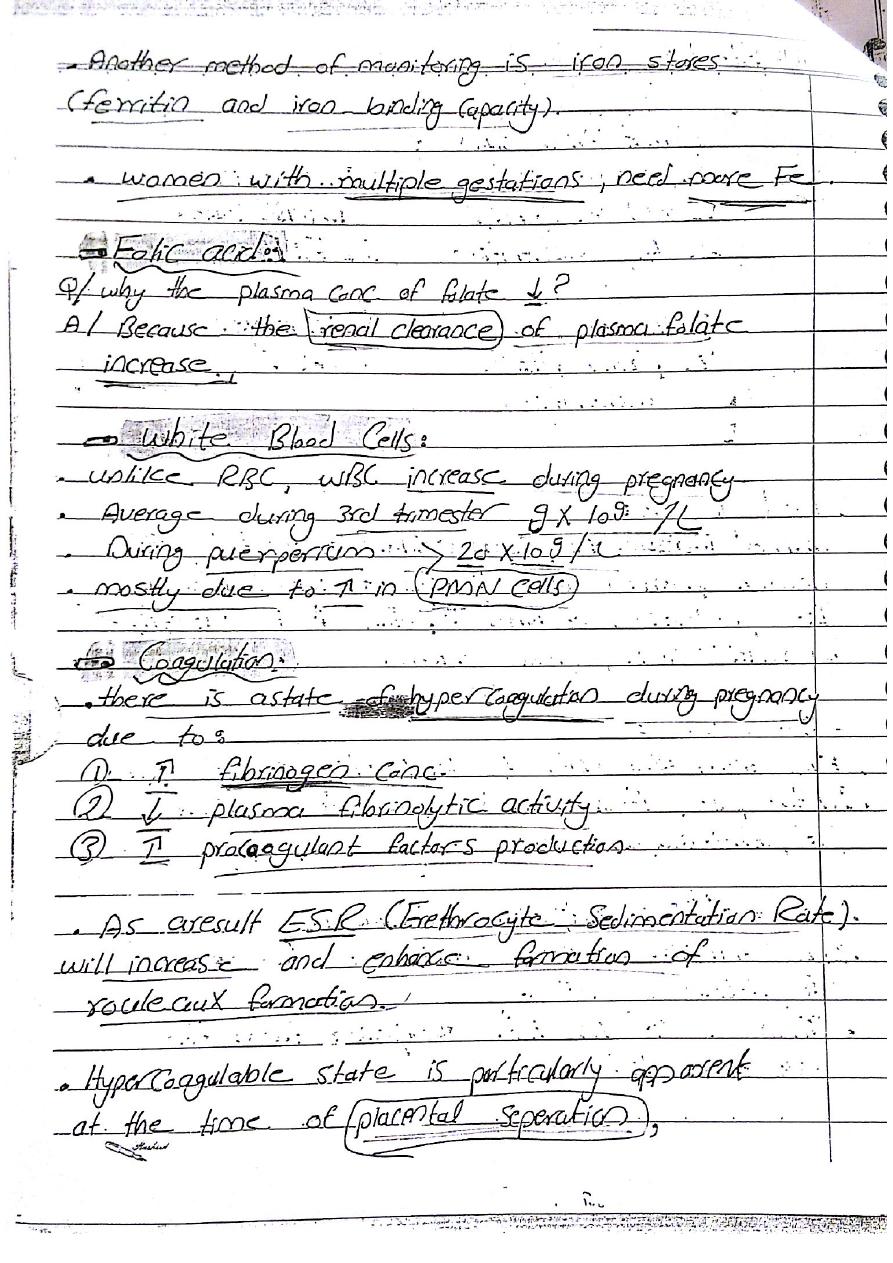 . Another method of monitering is iron stores
(ferritin and iron binding Capacity).
. women with multiple gestations, need more Fe.
Folic acid:
Q/ why the plasma conc of folate ↓?
A/ Because the renal clearance of plasma folate
increase.
White Blood Cells:
. unlike RBC, WBC increase during pregnancy
. Average during 3rd trimester 9 X 10 9 /L
. During puerperium > 20 X 10 9 / L
. mostly due to ↑ in PMN cells
Coagulation:
. there is a state of hyper Coagulation during pregnancy
due to:
① ↑ fibrinogen conc.
② ↓ plasma fibrinolytic activity
③ ↑ procoagulant factors production
. As aresult ESR (Erethrocyte Sedimentation Rate).
will increase and enhance formation of
rouleaux formation.
. HyperCoagulable state is particularly apparent
at the time of placental seperation,